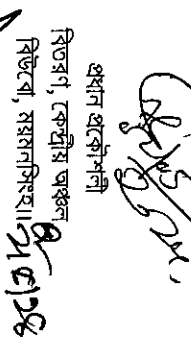 প্রধান প্রকৌশলী
বিতরণ, কেন্দ্রীয় অঞ্চল
বিউবো, ময়মনসিংহ।।